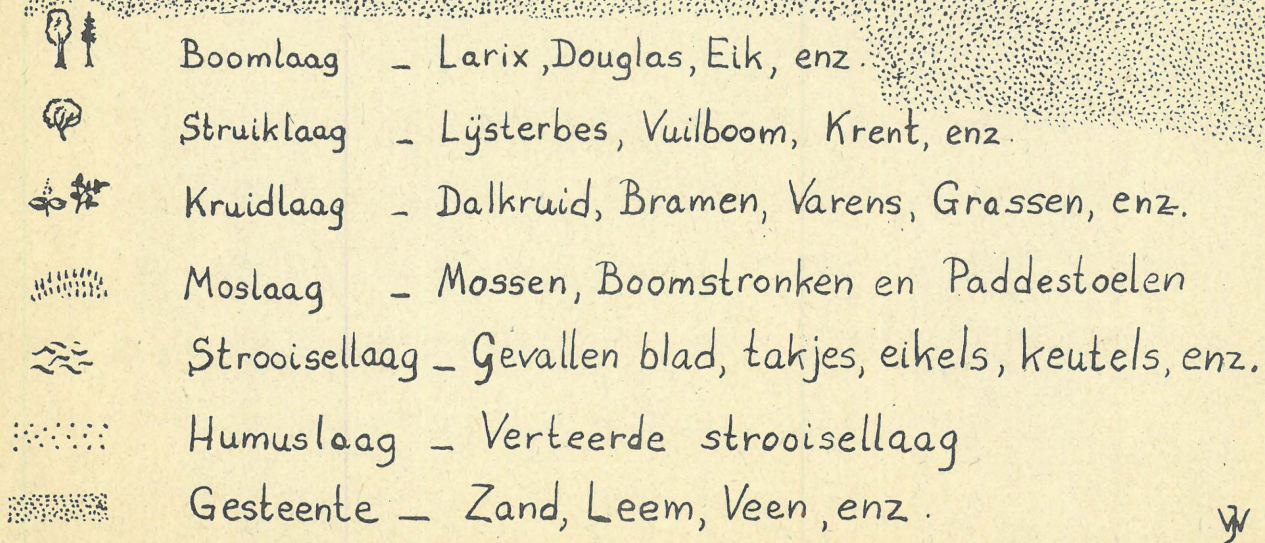 Boomlaag – Larix, Douglas, Eik, enz.
Struiklaag – Lijsterbes, Vuilboom, Krent, enz.
Kruidlaag – Dalkruid, Bramen, Varens, Grassen, enz.
Moslaag – Mossen, Boomstronken en Paddestoelen
Strooisellaag – Gevallen blad, takjes, eikels, keutels, enz.
Humuslaag – Verteerde strooisellaag
Gesteente – Zand, Leem, Veen, enz.